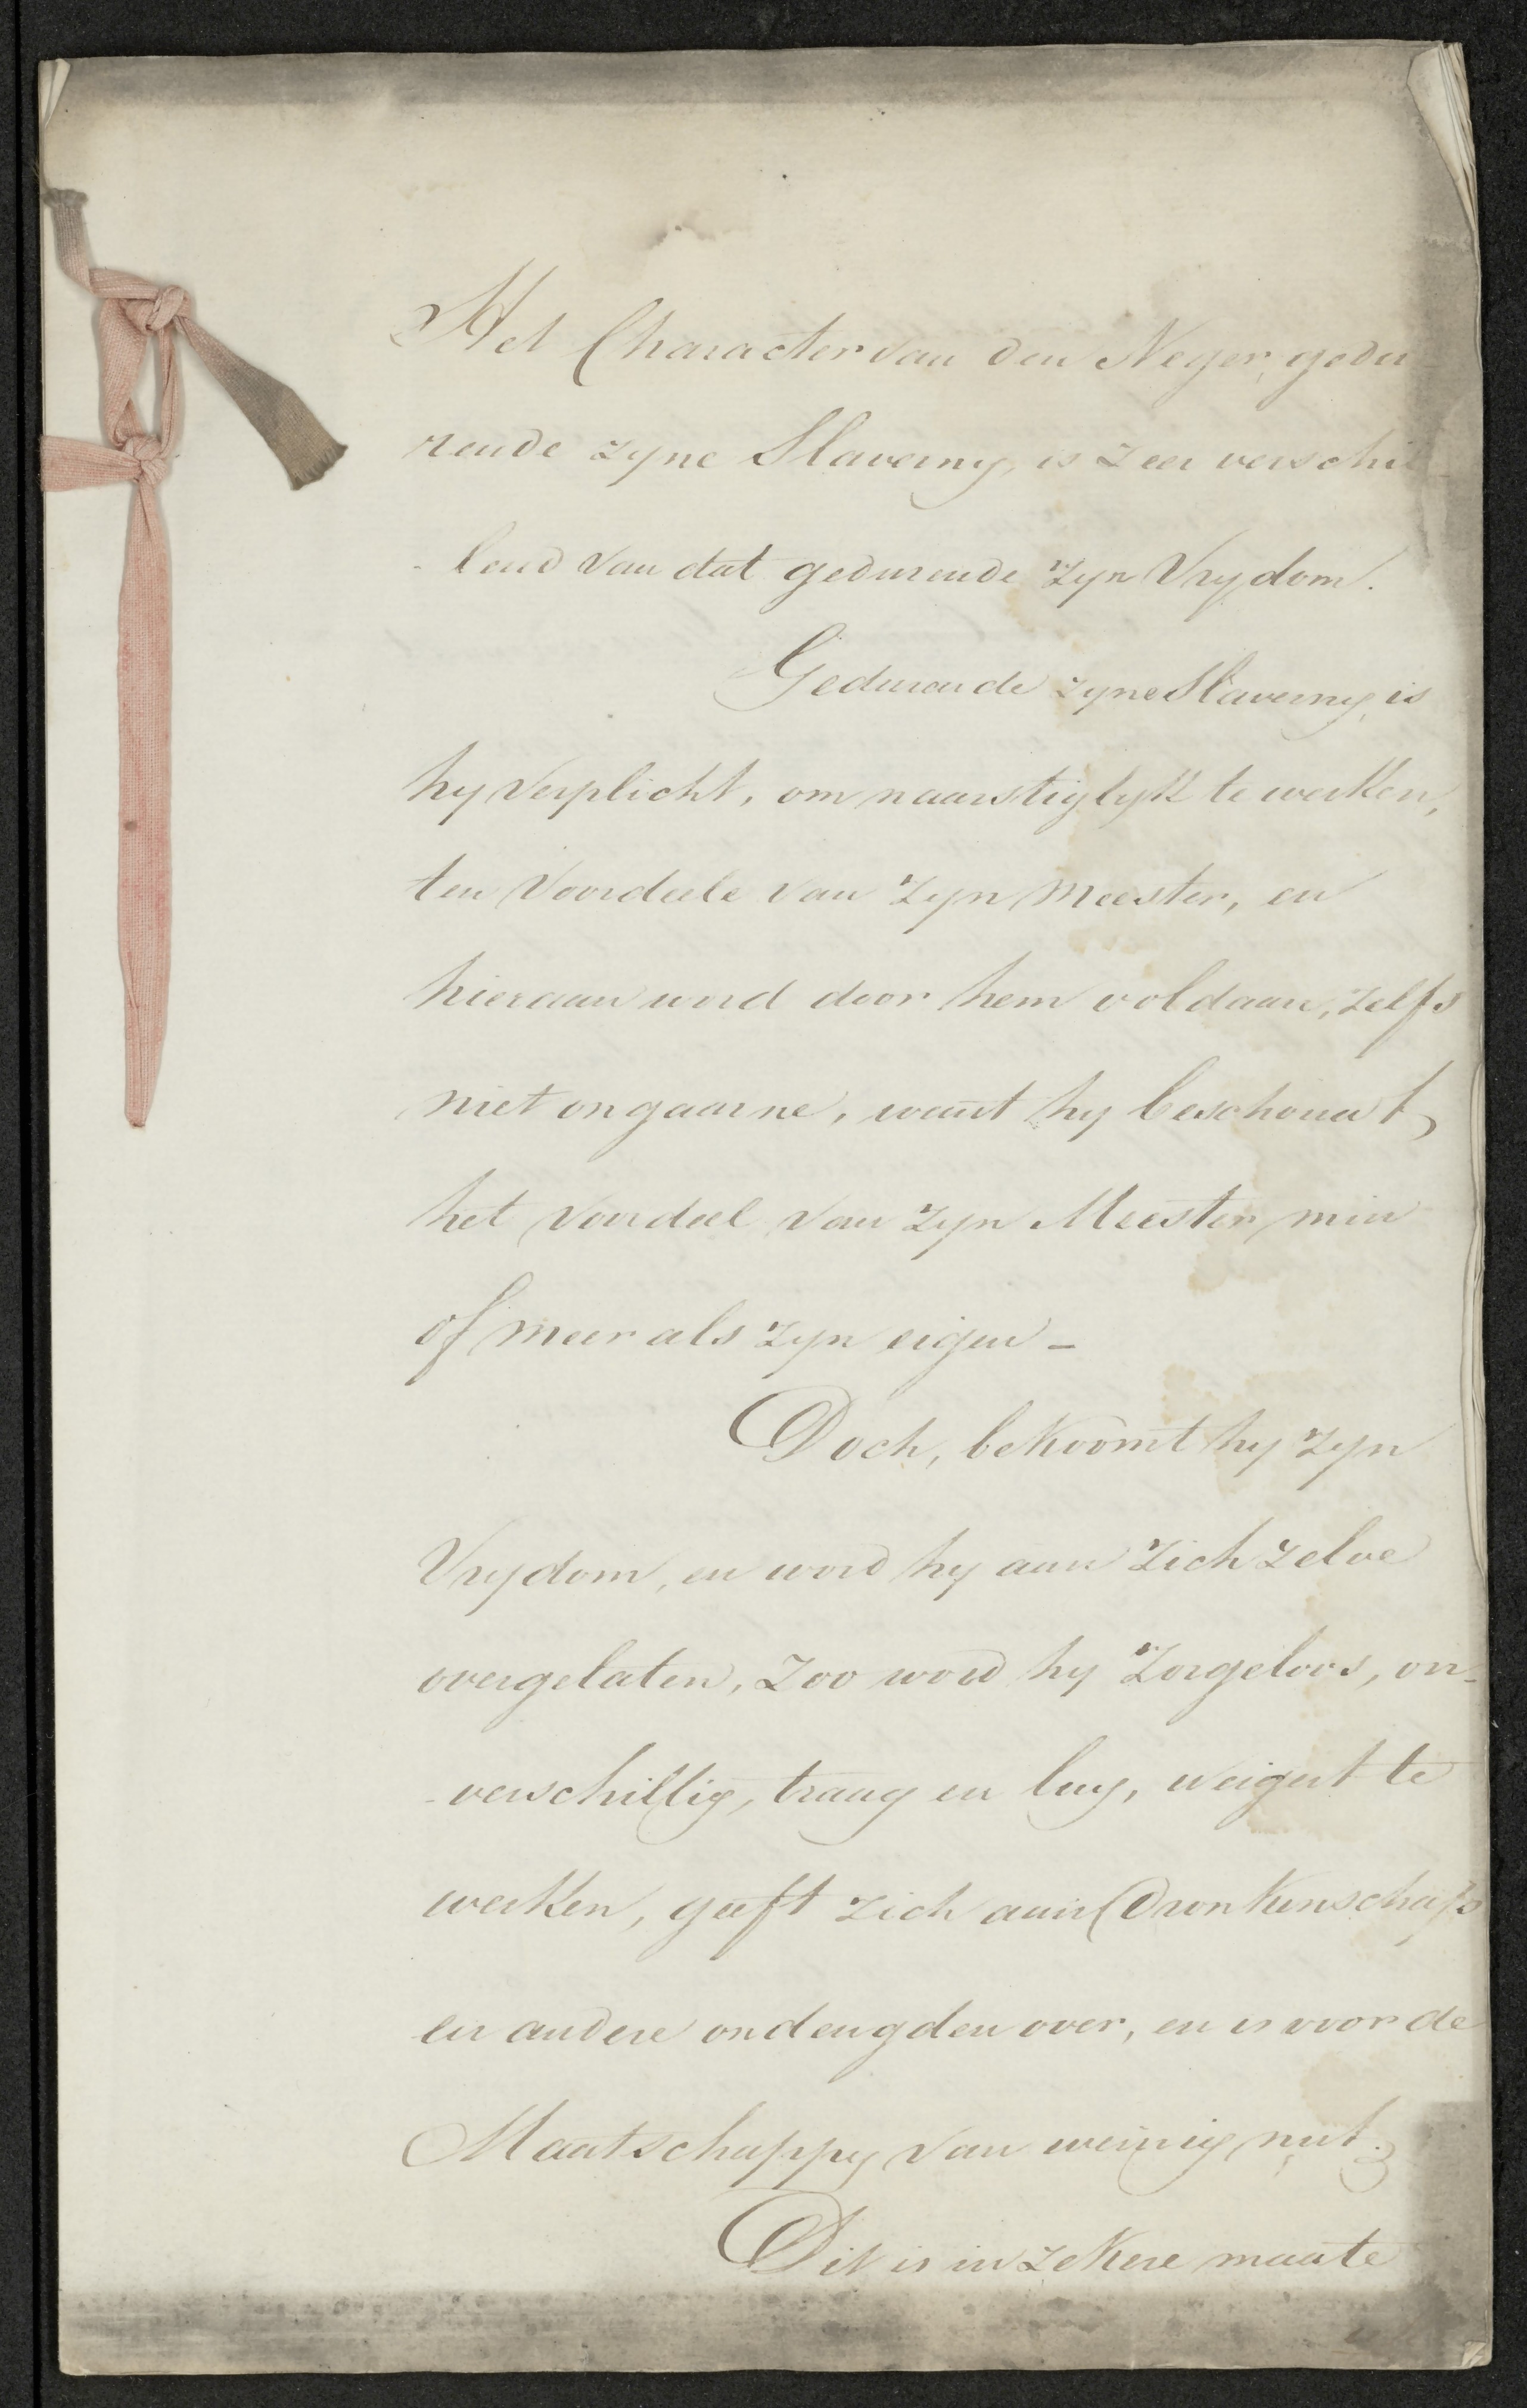 Het Character van den Neger, gedu
rende zyne Slaverny, is zeer verschil
- lend van dat gedurende zyn Vrydom.
Gedurende zyne Slaverny, is
hy verplicht, om naarstiglyk te werken,
ten voordeele van zyn Meester, en
hieraan word door hem voldaan, zelfs
niet ongaarne, want hy beschouwt
het voordeel van zyn Meester min
of meer als zyn eigen -
Doch, bekoomt hy zyn
Vrydom, en word hy aan zich zelve
overgelaten, zoo word hy zorgeloos, on-
- verschillig, traag en luy, weigert te
werken, geeft zich aan Dronkenschap
en andere ondeugden over, en is voor de
Maatschappy van weinig nut.
Dit is in zekere maate